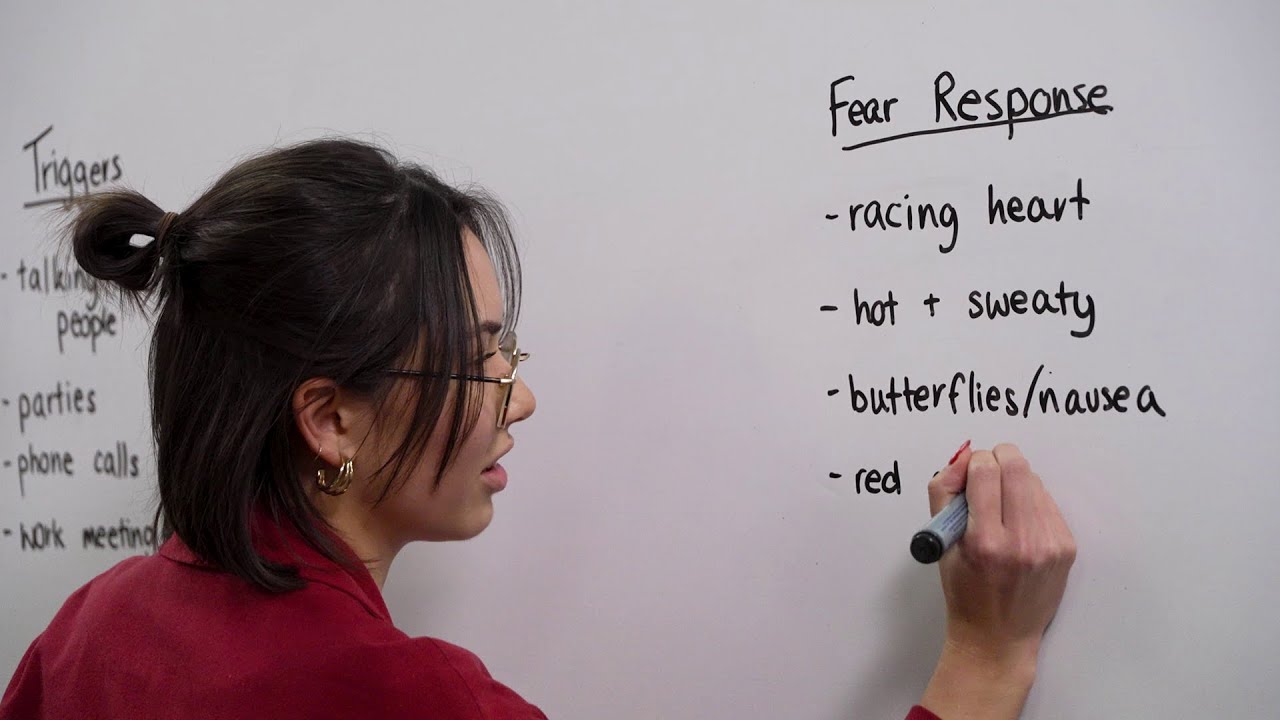 Triggers
- talking
people
- parties
- phone calls
- work meeting
Fear Response
- racing heart
- hot + sweaty
- butterflies/nausea
- red